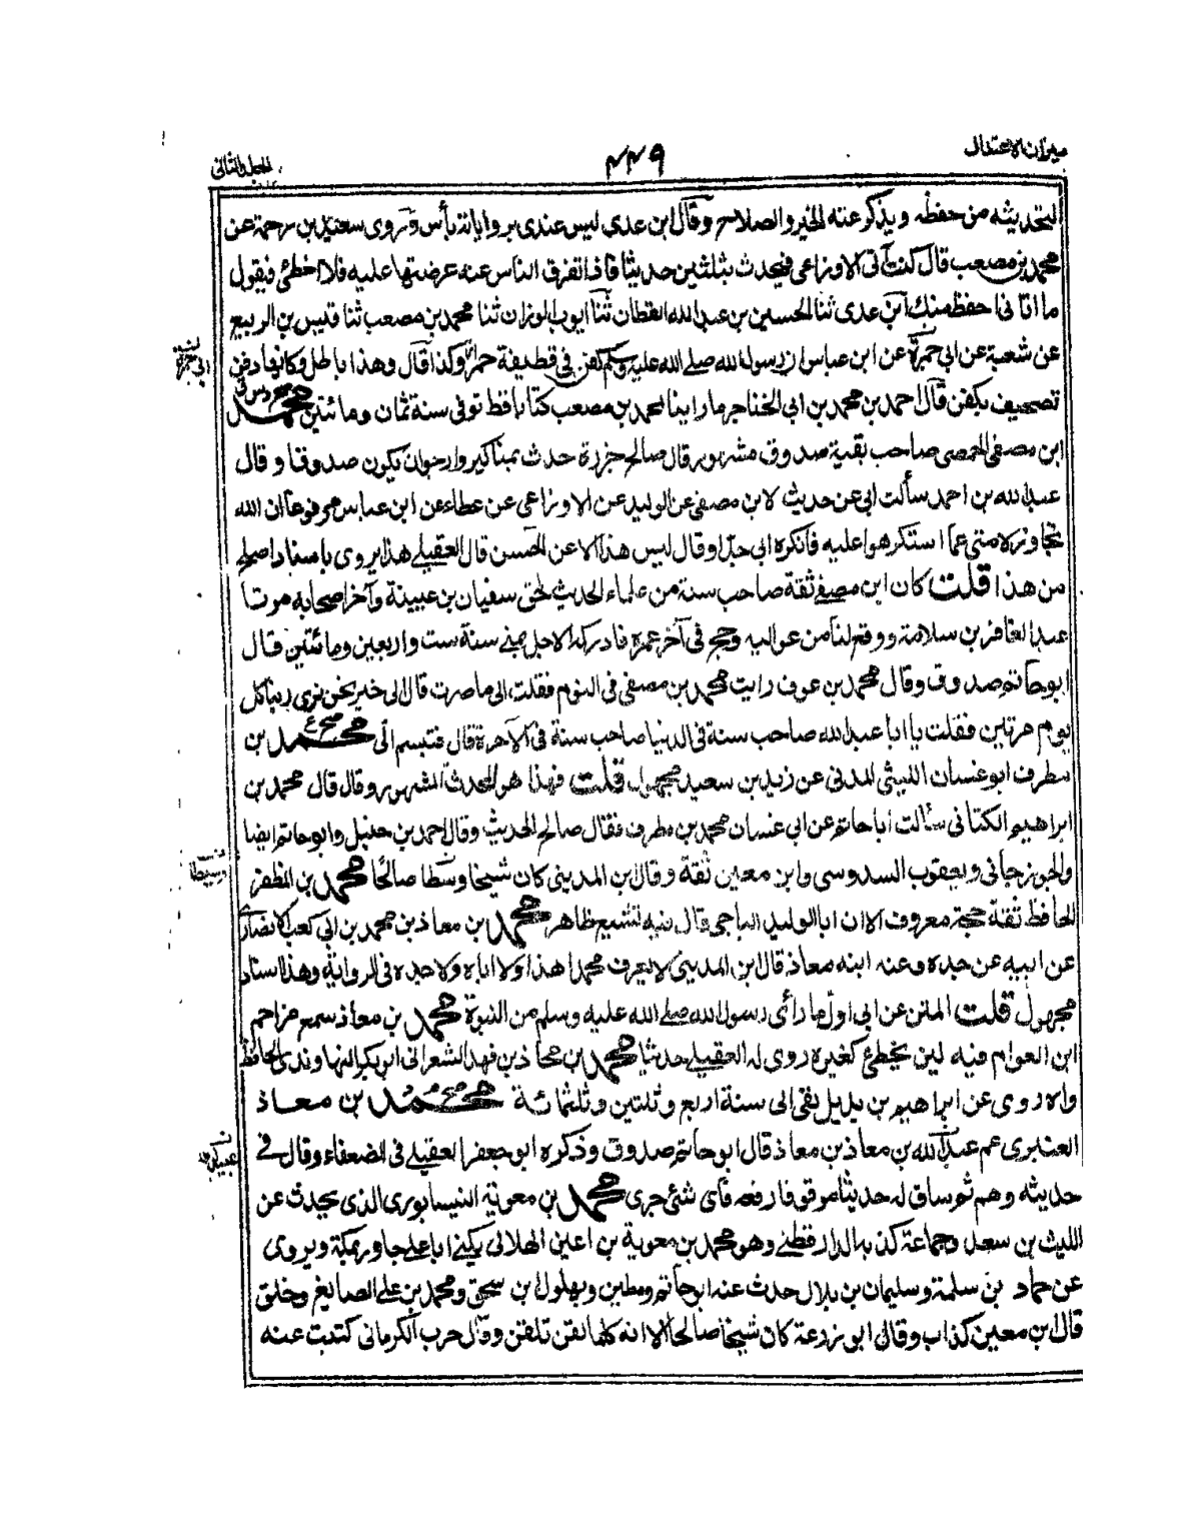 ميزان الاعتدال
٤٤٩
المجلد الثاني
لتحديثه من حفظه ويذكر عنه الخير والصلاح وقال ابن عدي ليس عندي برواياته بأس وروى سعيد بن رحمة عن
محمد بن مصعب قال كنت آتي الاوزاعي فيحدث بثلثين حديثا فاذا تفرق الناس عنه عرضتها عليه فلا اخطئ فيقول
ما اتاني احفظ منك ابن عدي ثنا الحسين بن عبد الله القطان ثنا ايوب الوزان ثنا محمد بن مصعب ثنا قيس بن الربيع
عن شعبة عن ابي حمزة عن ابن عباس ان رسول الله صلى الله عليه وسلم كفن في قطيفة حمراء وكذا قال وهذا باطل وكانها دفن
ابي جمرة
تصحيف بكفن قال احمد بن محمد بن ابي الخناجر ما راينا لمحمد بن مصعب كتابا قط توفي سنة ثمان ومائتين محمد
ابن مصفى الحمصي صاحب بقية صدوق مشهور قال صالح جزرة حدث بمناكير وارجو ان يكون صدوقا وقال
عبد الله بن احمد سألت ابي عن حديث لابن مصفى عن الوليد عن الاوزاعي عن عطاء عن ابن عباس مرفوعا ان الله
تجاوز لامتي عما استكرهوا عليه فانكره ابي جدا وقال ليس هذا الا عن الحسن قال العقيلي هذا يروى باسناد اصلح
من هذا قلت كان ابن مصفى ثقة صاحب سنة من علماء الحديث لحق سفيان بن عيينة وآخر اصحابه موتا
عبد الغافر بن سلامة ووقع لنا من عواليه وحج في آخر عمره فادركه الاجل بمنى سنة ست واربعين ومائتين قال
ابو حاتم صدوق وقال محمد بن عوف رايت محمد بن مصفى في النوم فقلت الى ما صرت قال الى خير نحن نرى ربنا كل
يوم مرتين فقلت يا ابا عبد الله صاحب سنة في الدنيا صاحب سنة في الآخرة قال فتبسم الي محمد بن
مطرف ابو غسان الليثي المدني عن زيد بن سعيد مجهول قلت فهذا هو المحدث المشهور وقال قال محمد بن
ابراهيم الكتاني سألت ابا حاتم عن ابي غسان محمد بن مطرف فقال صالح الحديث وقال احمد بن حنبل وابو حاتم ايضا
والجوزجاني ويعقوب السدوسي وابن معين ثقة وقال بن المديني كان شيخا وسطا صالحا محمد بن المظفر
وسيطا
الحافظ ثقة حجة معروف الا ان ابا الوليد الباجي قال فيه تشيع ظاهر محمد بن معاذ بن محمد بن ابي كعب الانصاري
عن ابيه عن جده وعنه ابنه معاذ قال بن المديني لا يعرف محمدا هذا ولا اباه ولا جده في الرواية وهذا اسناد
مجهول قلت المتن عن ابي اول ما رأى رسول الله صلى الله عليه وسلم من النبوة محمد بن معاذ سمع مزاحم
ابن العوام فيه لين يخطئ كغيره روى له العقيلي حدثنا محمد بن معاذ بن فهد الشعراني ابو بكر النهاوندي الحافظ
واه روى عن ابراهيم بن ديزيل بقي الى سنة اربع وثلثين وثلثمائة محمد بن معاذ
العنبري عم عبيد الله بن معاذ بن معاذ قال ابو حاتم صدوق وذكره ابو جعفر العقيلي في الضعفاء وقال في
حديثه وهم ثم ساق له حديثا موقوفا رفعه فأي شئ جرى محمد بن معوية النيسابوري الذي يحدث عن
الليث بن سعد وجماعة كذبه الدارقطني وهو محمد بن معوية بن اعين الهلالي يكنى ابا علي جاور بمكة ويروي
عن حماد بن سلمة وسليمان بن بلال حدث عنه ابو حاتم ومطين وبهلول بن اسحق ومحمد بن علي الصايغ وخلق
قال بن معين كذاب وقال ابو زرعة كان شيخا صالحا الا انه كلما لقن تلقن وقال حرب الكرماني كتبت عنه